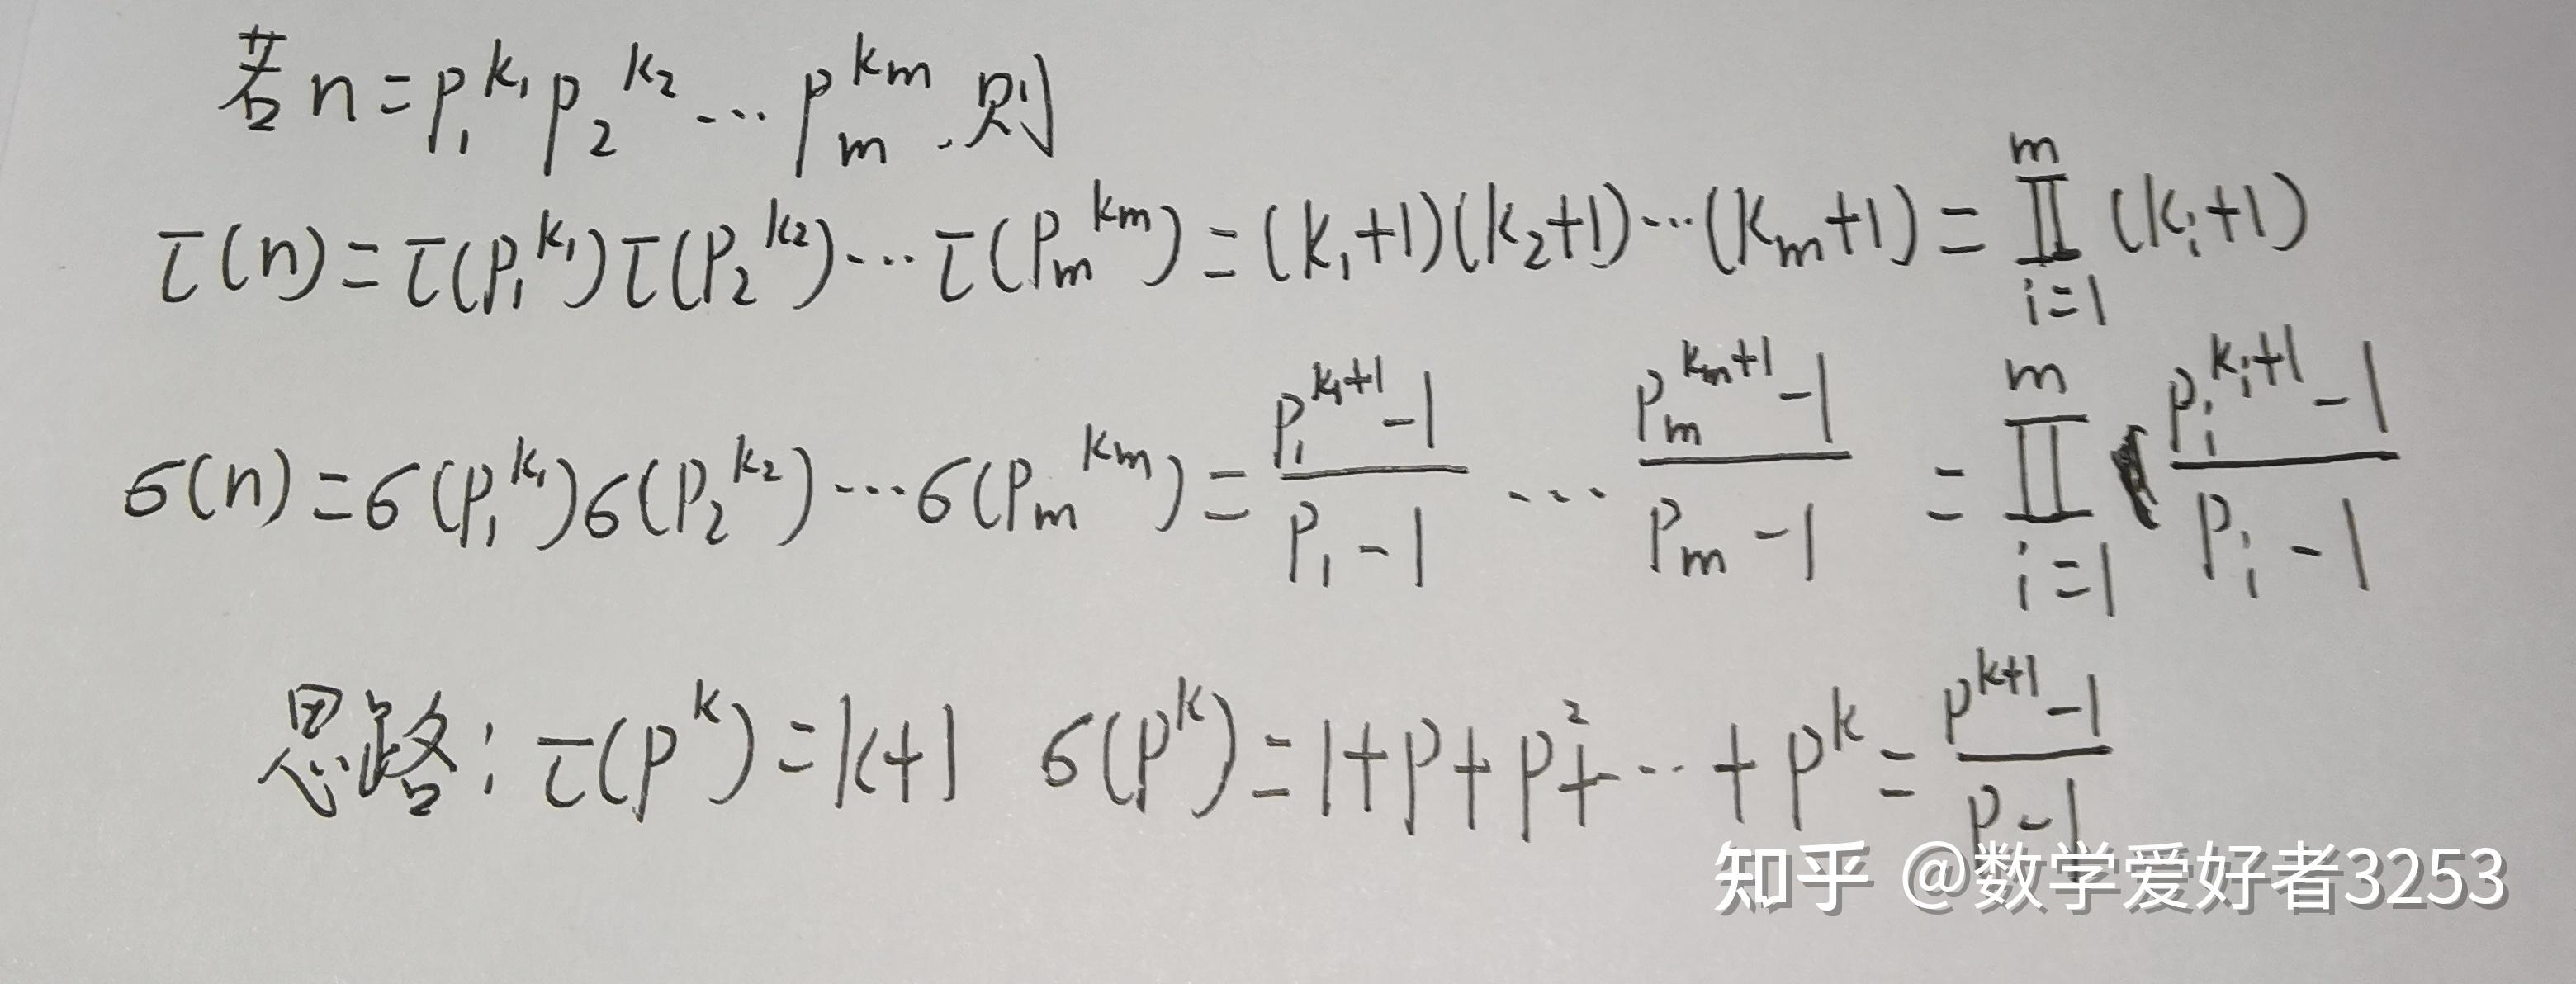 若 n = p₁^{k₁} p₂^{k₂} … p_m^{k_m}. 则
τ(n) = τ(p₁^{k₁}) τ(p₂^{k₂}) … τ(p_m^{k_m}) = (k₁+1)(k₂+1)…(k_m+1) = ∏_{i=1}^{m} (k_i+1)
σ(n) = σ(p₁^{k₁}) σ(p₂^{k₂}) … σ(p_m^{k_m}) = \frac{p₁^{k₁+1}-1}{p₁-1} … \frac{p_m^{k_m+1}-1}{p_m-1} = ∏_{i=1}^{m} \frac{p_i^{k_i+1}-1}{p_i-1}
思路: τ(p^k) = k+1 σ(p^k) = 1+p+p²+…+p^k = \frac{p^{k+1}-1}{p-1}
知乎 @数学爱好者3253